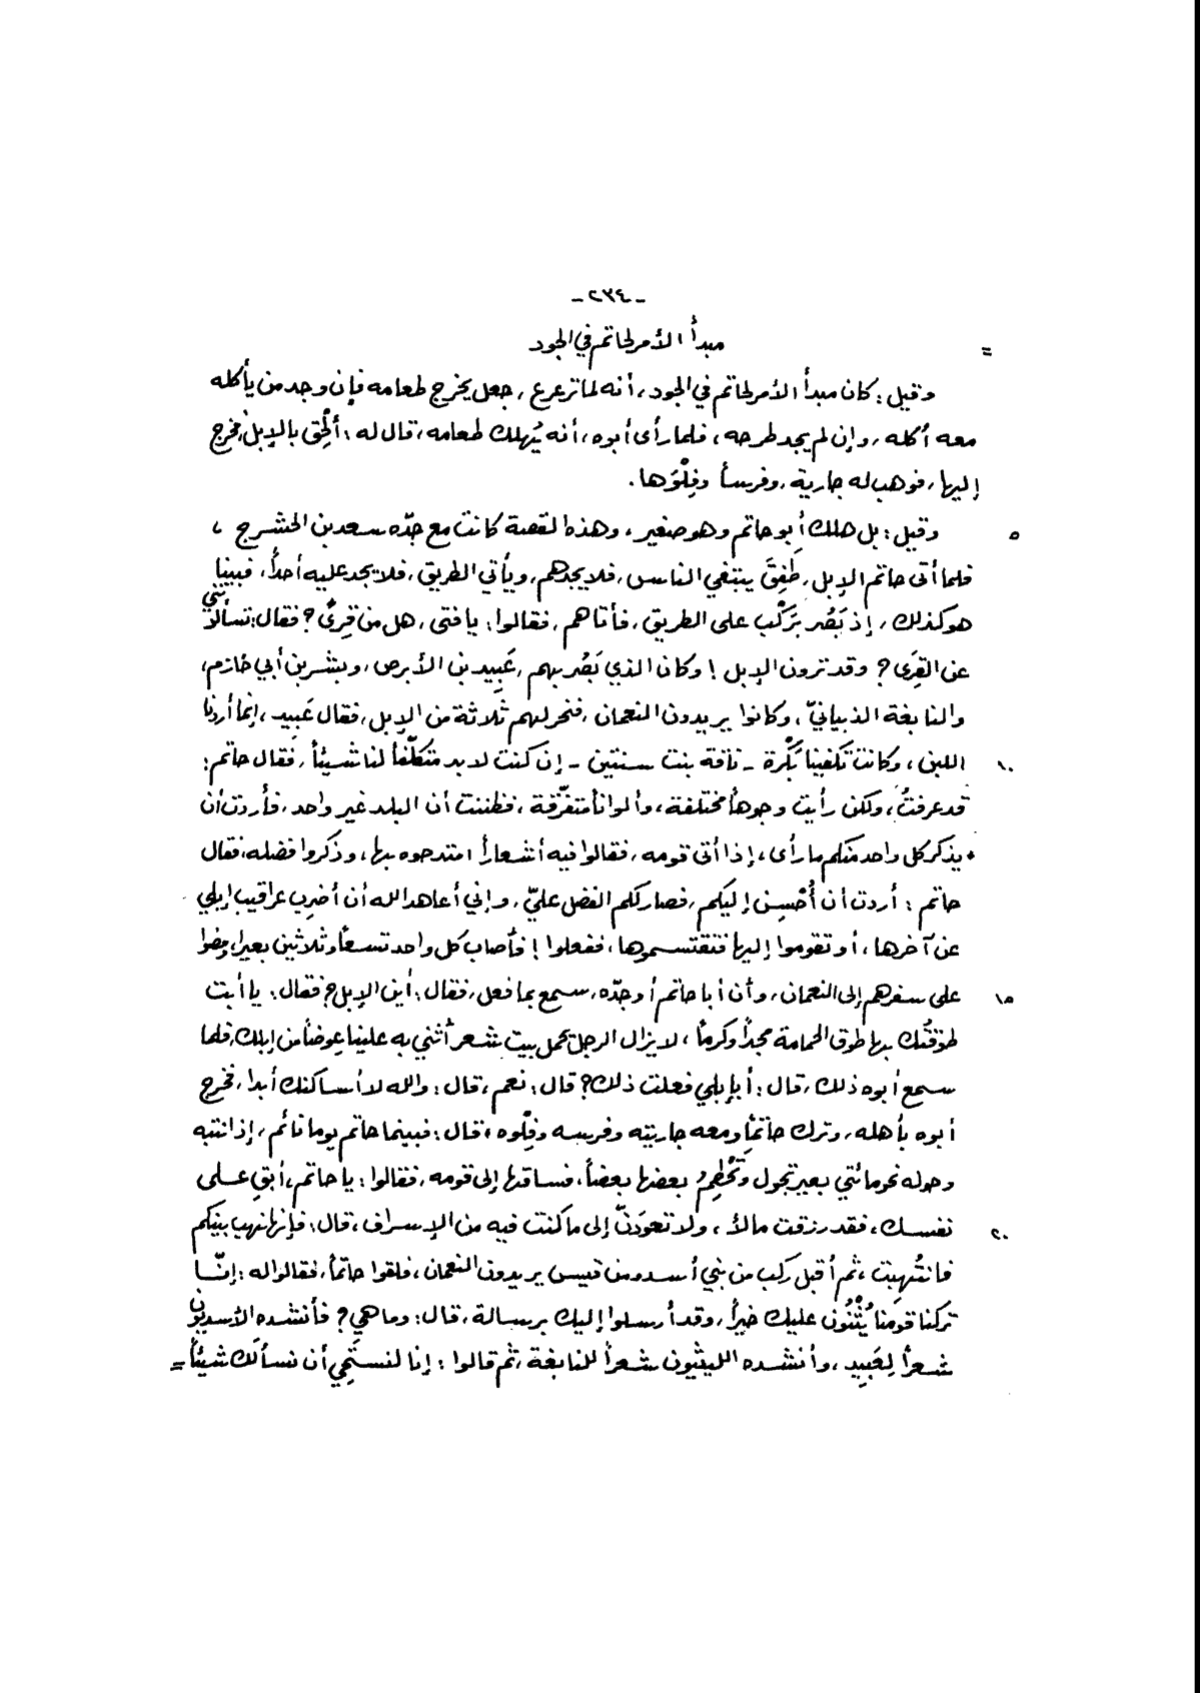 - ٢٣٤ -
= مبدأ الأمر لحاتم في الجود
وقيل: كان مبدأ الأمر لحاتم في الجود، أنه لما ترعرع، جعل يخرج طعامه فإن وجد من يأكله
معه أكله، وإن لم يجد طرحه، فلما رأى أبوه، أنه يُهلك طعامه، قال له: ألْحِق بالإبل، فخرج
إليها، فوهب له جارية، وفرساً وفِلْوَها.
٥ وقيل: بل هلك أبو حاتم وهو صغير، وهذه القصة كانت مع جدّه سعد بن الحشرج،
فلما أتى حاتم الإبل، طَفِقَ يبتغي الناس، فلا يجدهم، ويأتي الطريق، فلا يجد عليه أحداً، فبينا
هو كذلك، إذ بَصُر بَرَكْب على الطريق، فأتاهم، فقالوا: يا فتى، هل من قِرىً؟ فقال: تسألانني
عن القِرَى؟ وقد ترون الإبل! وكان الذي بَصُر بهم، عَبِيد بن الأبرص، وبشر بن أبي خازم،
والنابغة الذبيانيّ، وكانوا يريدون النعمان، فنحر لهم ثلاثة من الإبل، فقال عَبِيد، إنما أردنا
١٠ اللبن، وكانت تكفينا بَكْرة - ناقة بنت سنتين - إن كنت لا بد متكلّفاً لنا شيئاً، فقال حاتم:
قد عرفتُ، ولكن رأيت وجوهاً مختلفة، وألواناً متفرّقة، فظننت أن البلد غير واحد، فأردت أن
يذكر كل واحد منكم ما رأى، إذا أتى قومه، فقالوا فيه أشعاراً امتدحوه بها، وذكروا فضله، فقال
حاتم: أردت أن أُحْسِن إليكم، فصار لكم الفضل عليّ، وإني أعاهد الله أن أضرِب عراقيب إبلي
عن آخرها، أو تقوموا إليها فتقتسموها، ففعلوا! فأصاب كل واحد تسعاً وثلاثين بعيراً، ومضوا
١٥ على سفرهم إلى النعمان، وأن أبا حاتم أو جدّه، سمع بما فعل، فقال: أين الإبل؟ فقال: يا أبت
طوّقتُك بها طوق الحمامة مجداً وكرماً، لا يزال الرجل يحمل بيت شعر أُثني به علينا عِوضاً من إبلك، فلما
سمع أبوه ذلك، قال: أبإبلي فعلت ذلك؟ قال: نعم، قال: والله لا أساكنك أبدا، فخرج
أبوه بأهله، وترك حاتماً ومعه جاريته وفرسه وفِلْوه، قال: فبينما حاتم يوما نائم، إذ انتبه
وحوله نحو مائتي بعير تجول وتَحْطِم بعضها بعضاً، فساقها إلى قومه، فقالوا: يا حاتم، أبقِ على
٢٠ نفسك، فقد رزقت مالاً، ولا تعودَنّ إلى ما كنت فيه من الإسراف، قال: فإنها نهب بينكم
فانتُهِبت، ثم أقبل ركب من بني أسد ومن قيس يريدون النعمان، فلقوا حاتماً، فقالوا له: إنّا
تركنا قومنا يُثْنُون عليك خيراً، وقد أرسلوا إليك برسالة، قال: وما هي؟ فأنشده الأسديون
شعراً لِعَبِيد، وأنشده الليثيون شعراً للنابغة، ثم قالوا: إنا لنستَحِي أن نسألَك شيئاً =